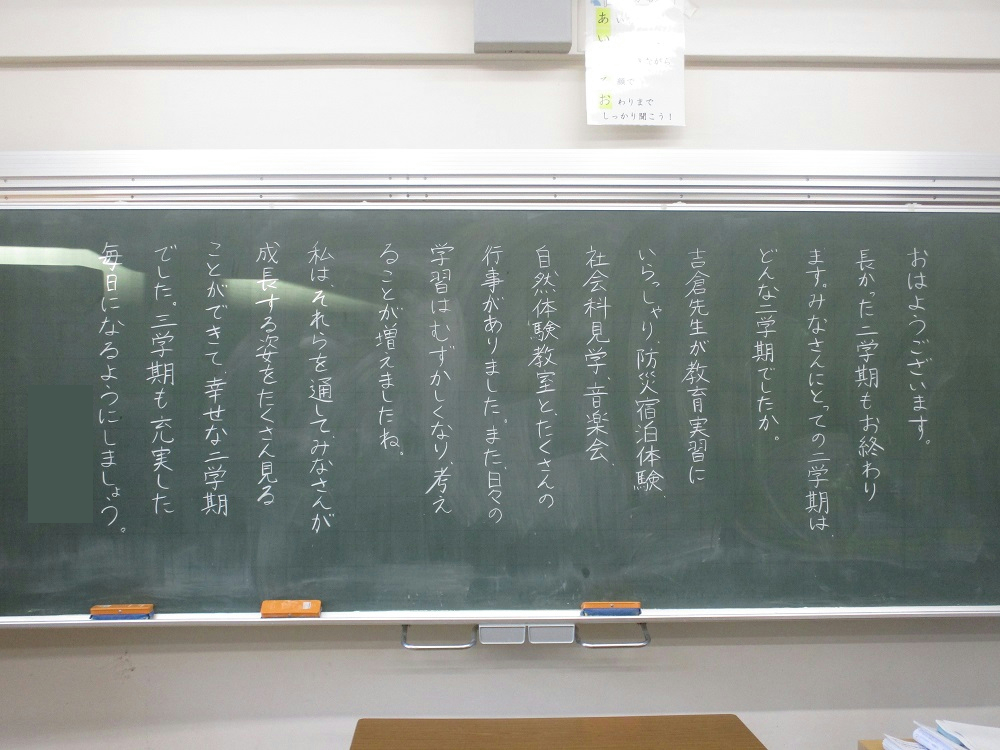 あい
ながら
顔で
おわりまで
しっかり聞こう！
おはようございます。
長かった二学期もお終わり
ます。みなさんにとっての二学期は、
どんな二学期でしたか。
吉倉先生が教育実習に
いらっしゃり、防災宿泊体験、
社会科見学、音楽会、
自然体験教室と、たくさんの
行事がありました。また、日々の
学習はむずかしくなり、考え
ることが増えましたね。
私は、それらを通して、みなさんが
成長する姿をたくさん見る
ことができて、幸せな二学期
でした。三学期も充実した
毎日になるようにしましょう。